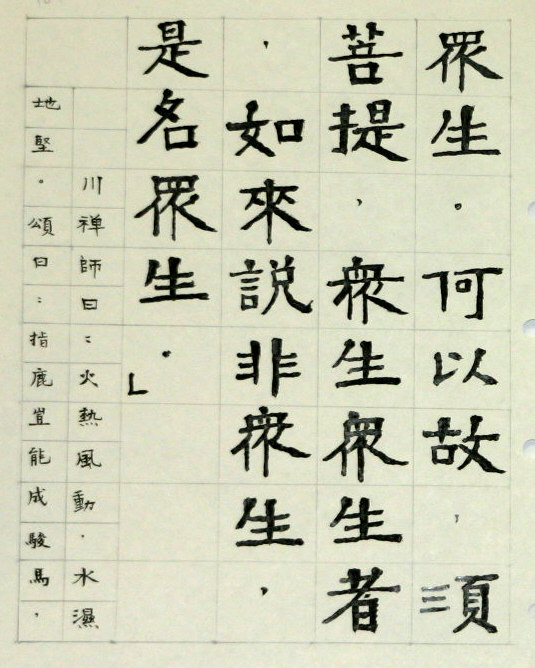 眾生。何以故，須
菩提，衆生衆生者
，如來説非衆生，
是名眾生。」
川禪師曰：火熱風動，水濕
地堅。頌曰：指鹿豈能成駿馬，